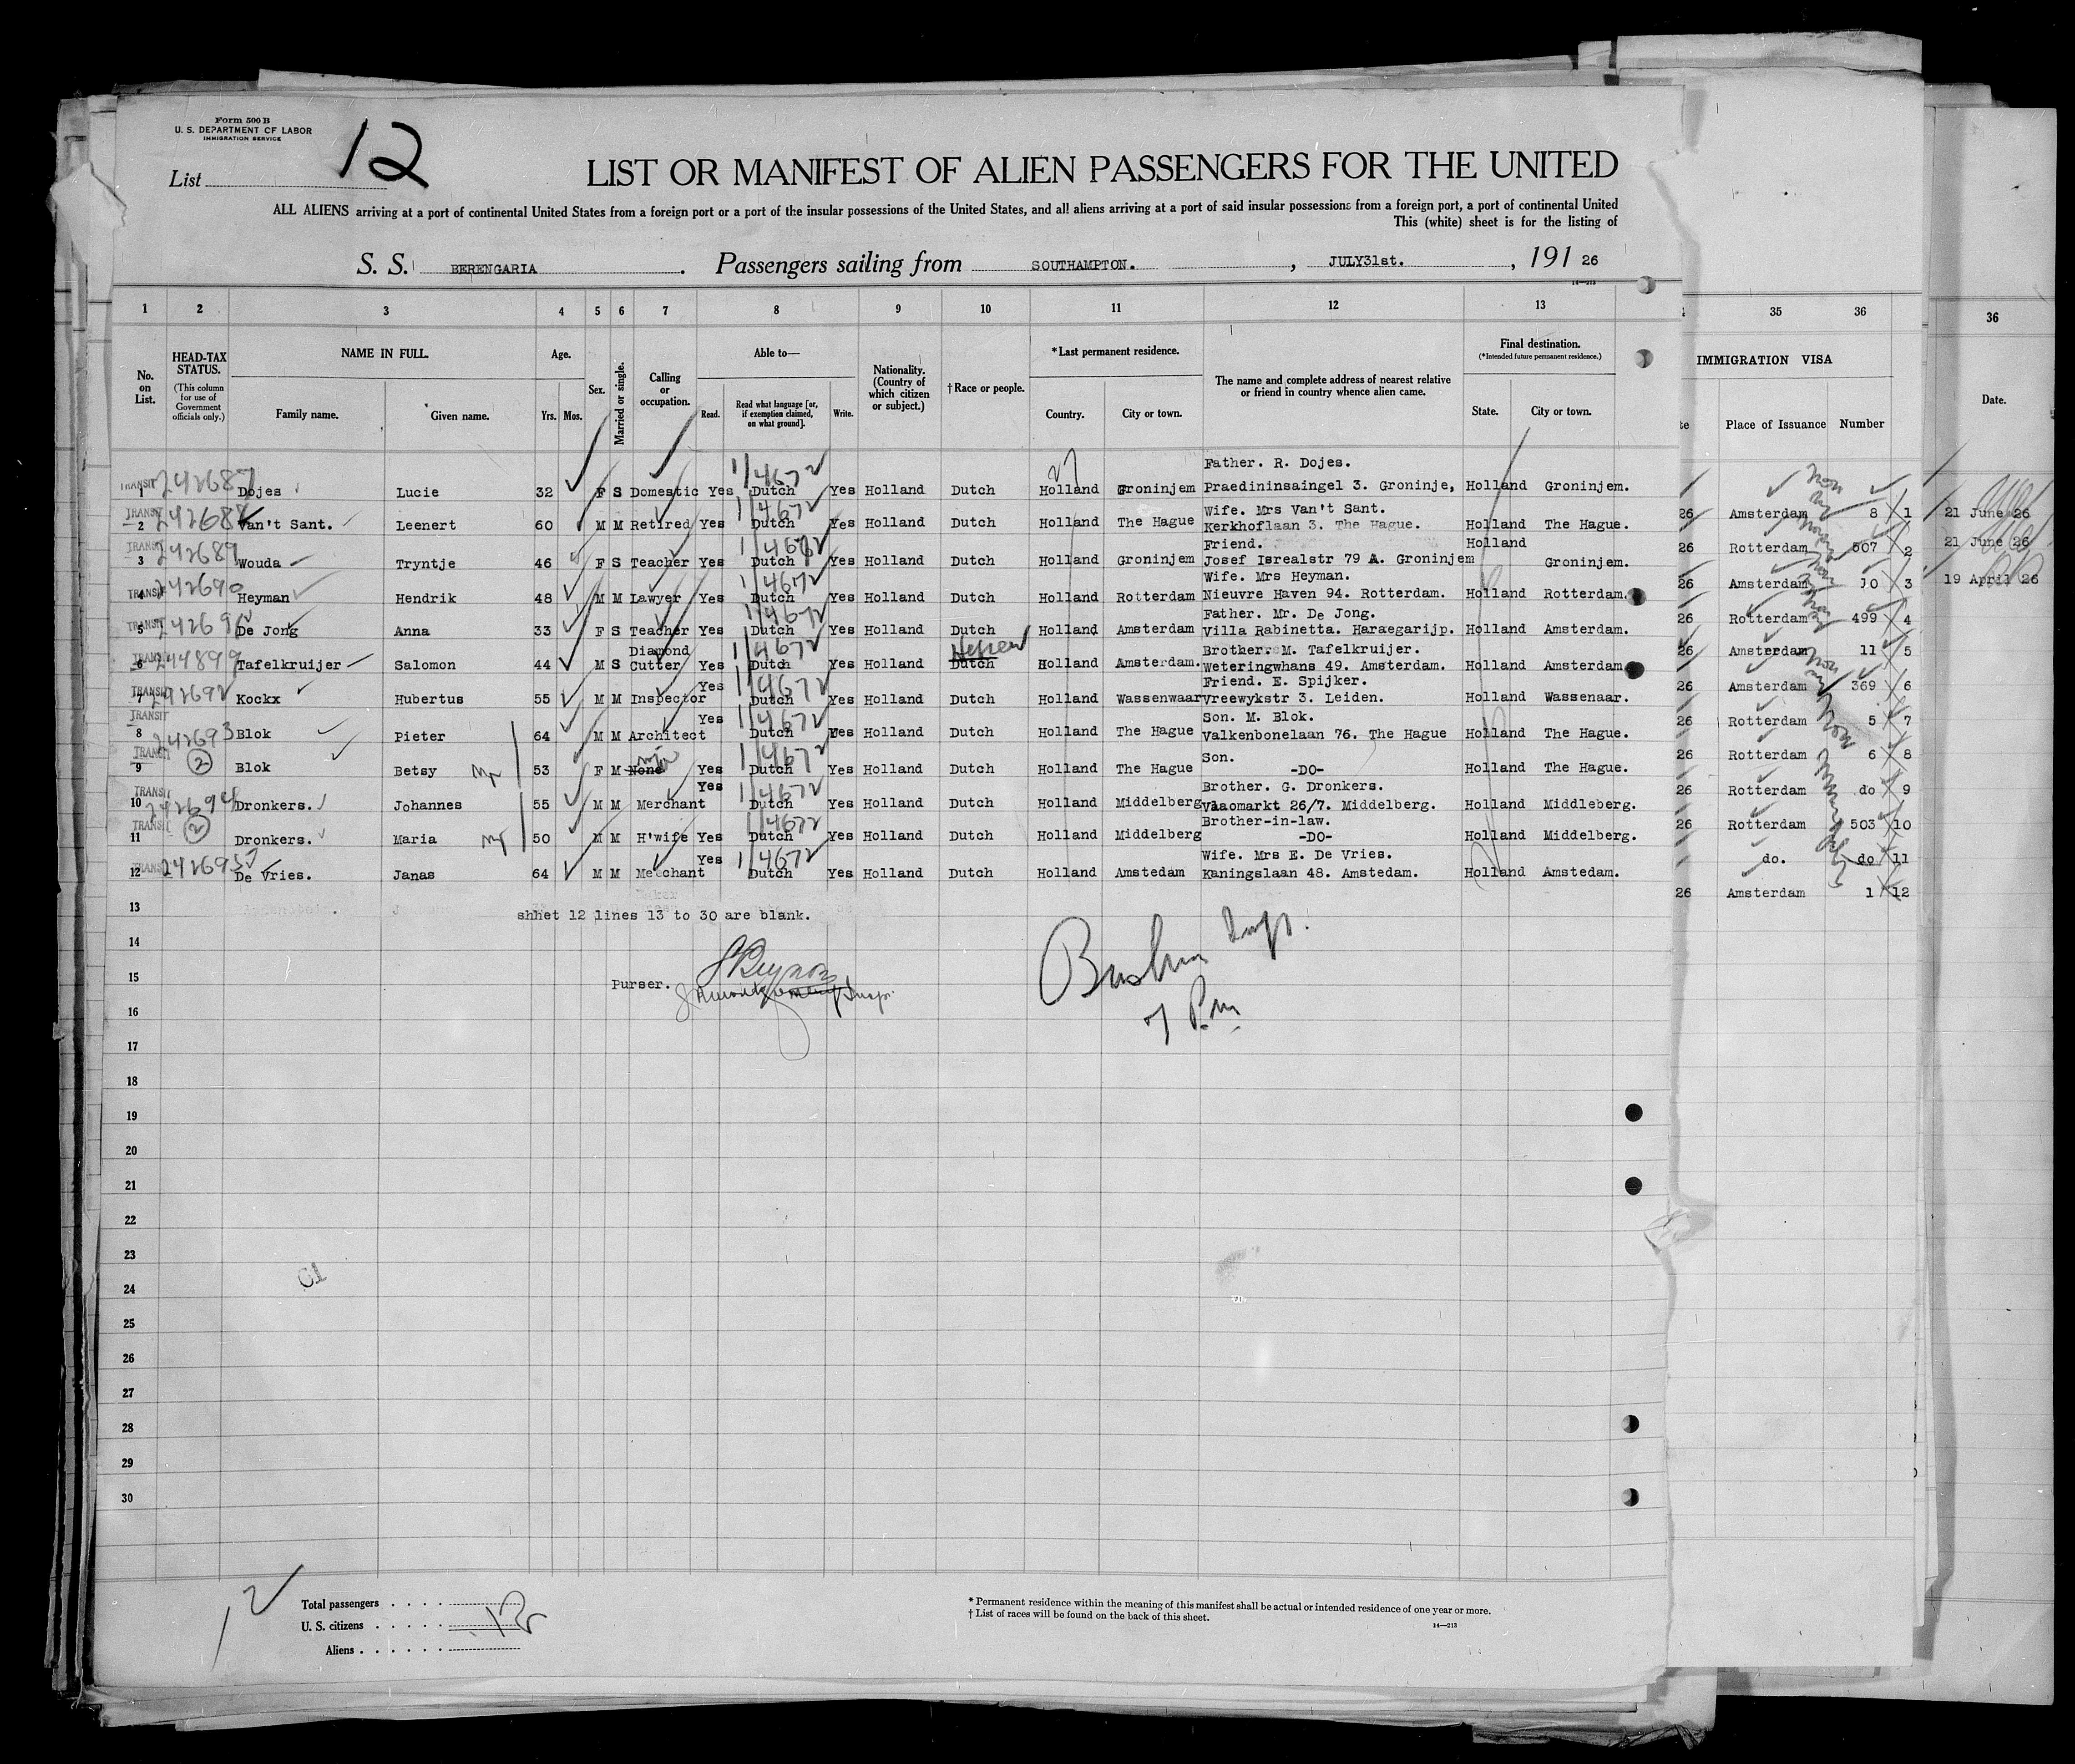 Form 500 B
U. S. DEPARTMENT OF LABOR
IMMIGRATION SERVICE
List 12
LIST OR MANIFEST OF ALIEN PASSENGERS FOR THE UNITED
ALL ALIENS arriving at a port of continental United States from a foreign port or a port of the insular possessions of the United States, and all aliens arriving at a port of said insular possessions from a foreign port, a port of continental United
This (white) sheet is for the listing of
S. S. BERENGARIA. Passengers sailing from SOUTHAMPTON. , JULY31st. , 191 26
14—213
1 2 3 4 5 6 7 8 9 10 11 12 13 35 36 36
No. on List.
HEAD-TAX STATUS.
(This column for use of Government officials only.)
NAME IN FULL.
Family name. Given name.
Age.
Yrs. Mos.
Sex.
Married or single.
Calling or occupation.
Able to—
Read. Read what language [or, if exemption claimed, on what ground]. Write.
Nationality. (Country of which citizen or subject.)
† Race or people.
* Last permanent residence.
Country. City or town.
The name and complete address of nearest relative or friend in country whence alien came.
Final destination.
(*Intended future permanent residence.)
State. City or town.
IMMIGRATION VISA
Place of Issuance Number
Date.
Father. R. Dojes.
TRANSIT 1 242687 Dojes Lucie 32 F S Domestic Yes 1/4672 Dutch Yes Holland Dutch Holland Groninjem Praedininsaingel 3. Groninje, Holland Groninjem.
Wife. Mrs Van't Sant.
TRANSIT 2 242688 Van't Sant. Leenert 60 M M Retired Yes 1/4672 Dutch Yes Holland Dutch Holland The Hague Kerkhoflaan 3. The Hague. Holland The Hague.
Friend. Holland
TRANSIT 3 242689 Wouda Tryntje 46 F S Teacher Yes 1/4672 Dutch Yes Holland Dutch Holland Groninjem Josef Isrealstr 79 A. Groninjem Groninjem.
Wife. Mrs Heyman.
TRANSIT 4 242690 Heyman Hendrik 48 M M Lawyer Yes 1/4672 Dutch Yes Holland Dutch Holland Rotterdam Nieuvre Haven 94. Rotterdam. Holland Rotterdam.
Father. Mr. De Jong.
TRANSIT 5 242691 De Jong Anna 33 F S Teacher Yes 1/4672 Dutch Yes Holland Dutch Holland Amsterdam Villa Rabinetta. Haraegarijp. Holland Amsterdam.
Diamond Hebrew Brother. M. Tafelkruijer.
TRANSIT 6 244899 Tafelkruijer Salomon 44 M S Cutter Yes 1/4672 Dutch Yes Holland Dutch Holland Amsterdam. Weteringwhans 49. Amsterdam. Holland Amsterdam
Yes Friend. E. Spijker.
TRANSIT 7 242692 Kockx Hubertus 55 M M Inspector 1/4672 Dutch Yes Holland Dutch Holland Wassenwaar Vreewykstr 3. Leiden. Holland Wassenaar.
Yes Son. M. Blok.
TRANSIT 8 242693 Blok Pieter 64 M M Architect 1/4672 Dutch Yes Holland Dutch Holland The Hague Valkenbonelaan 76. The Hague Holland The Hague.
Son.
TRANSIT 9 2 Blok Betsy 53 F M None Yes 1/4672 Dutch Yes Holland Dutch Holland The Hague -DO- Holland The Hague.
Yes Brother. G. Dronkers.
TRANSIT 10 242694 Dronkers. Johannes 55 M M Merchant 1/4672 Dutch Yes Holland Dutch Holland Middelberg Vlaomarkt 26/7. Middelberg. Holland Middleberg.
Brother-in-law.
TRANSIT 11 2 Dronkers. Maria 50 M M H'wife Yes 1/4672 Dutch Yes Holland Dutch Holland Middelberg -DO- Holland Middelberg.
Yes Wife. Mrs E. De Vries.
TRANSIT 12 242695 De Vries. Janas 64 M M Merchant 1/4672 Dutch Yes Holland Dutch Holland Amstedam Kaningslaan 48. Amstedam. Holland Amstedam.
13
shhet 12 lines 13 to 30 are blank.
14
15
Purser.
Insp.
7 P.m.
16
17
18
19
20
21
22
23
24
25
26
27
28
29
30
26 Amsterdam 8 1 21 June 26
26 Rotterdam 507 2 21 June 26
26 Amsterdam 10 3 19 April 26
26 Rotterdam 499 4
26 Amsterdam 11 5
26 Amsterdam 369 6
26 Rotterdam 5 7
26 Rotterdam 6 8
26 Rotterdam do 9
26 Rotterdam 503 10
do. do 11
26 Amsterdam 1 12
12
Total passengers . . . .
U. S. citizens . . . . . 12
Aliens . . . . . .
* Permanent residence within the meaning of this manifest shall be actual or intended residence of one year or more.
† List of races will be found on the back of this sheet.
14—213